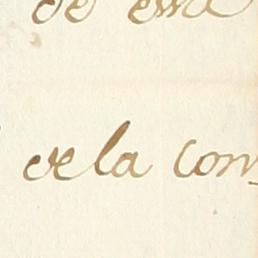 de essa
de la con